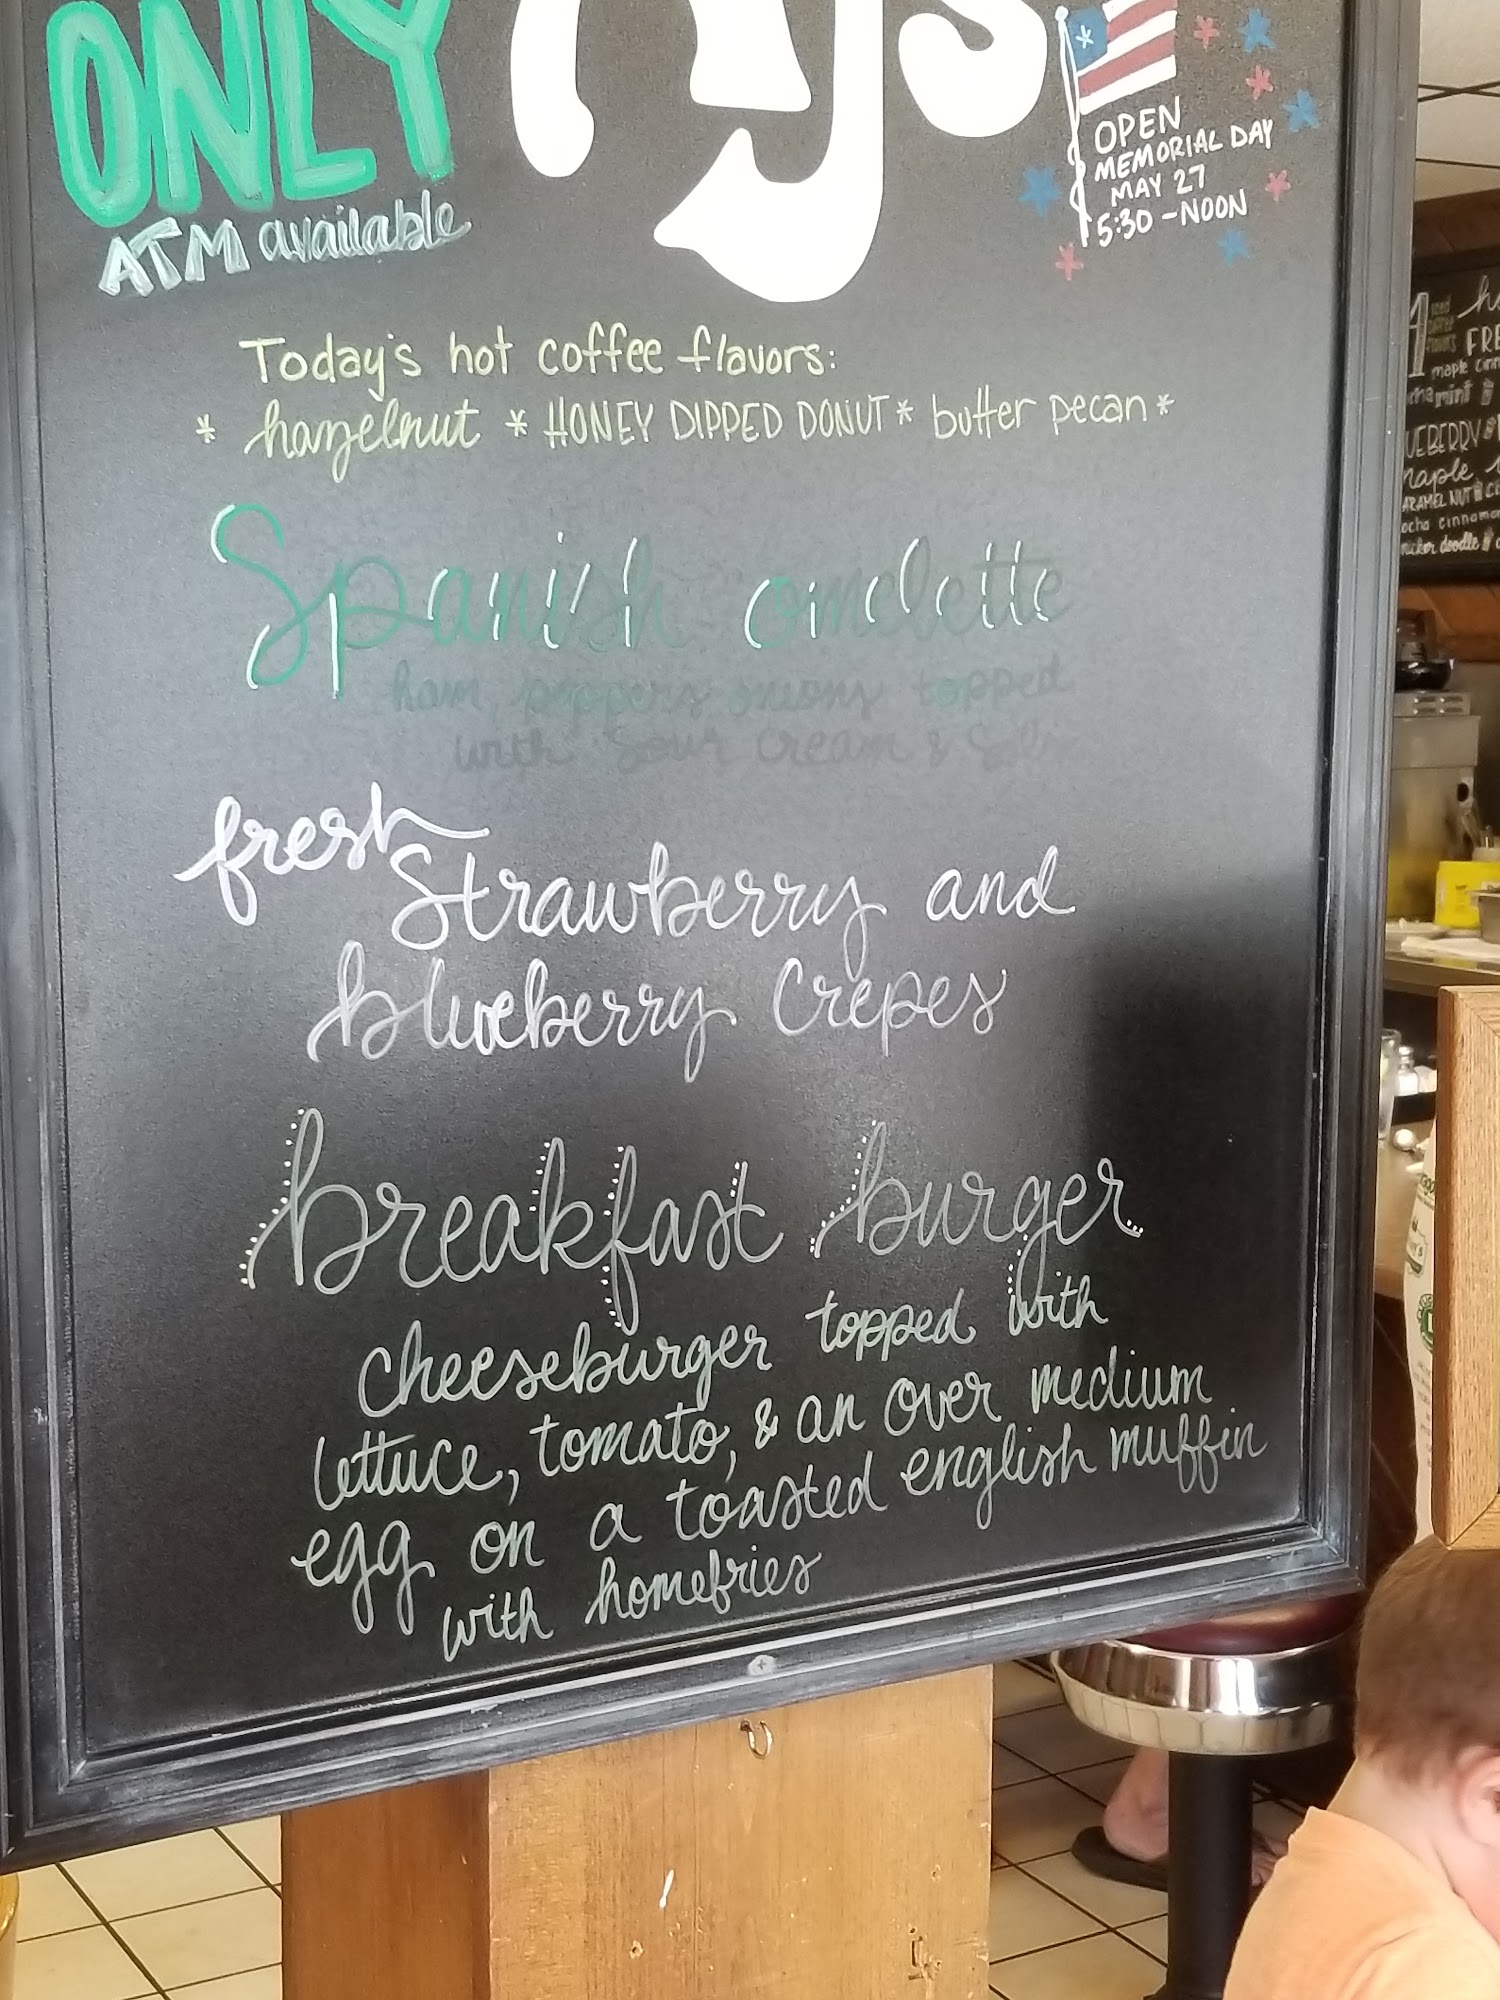 ONLY
ATM available
AJs
OPEN
MEMORIAL DAY
MAY 27
5:30 - NOON
Today's hot coffee flavors:
* hazelnut * HONEY DIPPED DONUT * butter pecan *
Spanish omelette
ham, peppers onions topped
with sour cream &
fresh
strawberry and
blueberry crepes
breakfast burger
cheeseburger topped with
lettuce, tomato, & an over medium
egg on a toasted english muffin
with homefries
FRE
maple cinn
mint
maple
ARAMEL NUT
ocha cinnamon
doodle